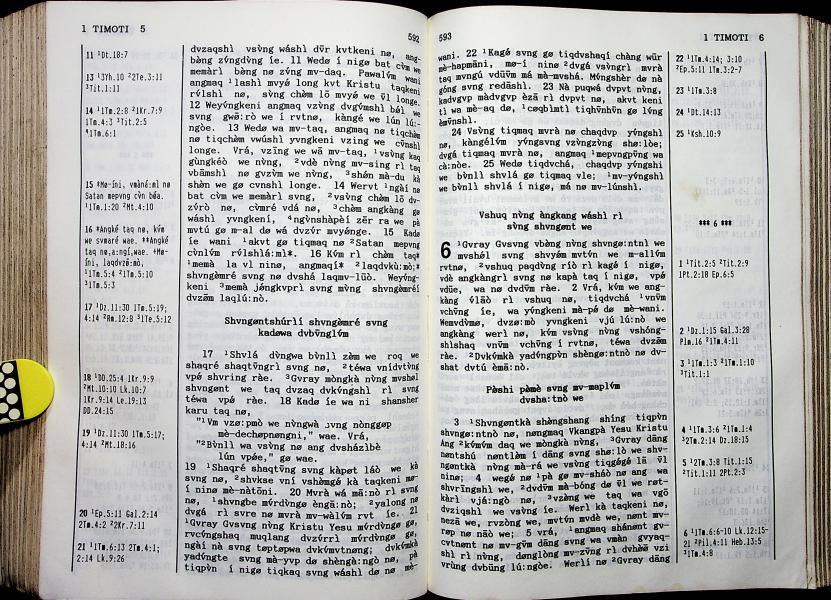 1 TIMOTI 5
592
11 ¹Dt.18:7
13 ¹3Yh.10 ²2Te.3:11
³Tit.1:11
14 ¹1Tm.2:8 ²1Kr.7:9
1Tm.4:3 ³Tit.2:5
⁴1Tm.6:1
Satan mepvng cv̀n bǿa.
¹1Tm.1:20 ²Mt.4:10
16 *Angké taq nø, kv́m
we svmaré wae.
¹1Tm.5:4 ²1Tm.5:10
³1Tm.5:3
17 ¹Dz.11:30 1Tm.5:19;
4:14 ²Rm.12:8 ³1Te.5:12
18 ¹DD.25:4 1Kr.9:9
²Mt.10:10 Lk.10:7
1Kr.9:14 Le.19:13
DD.24:15
19 ¹Dz.11:30 1Tm.5:17;
4:14 ²Mt.18:16
20 ¹Ep.5:11 Gal.2:14
2Tm.4:2 ²2Kr.7:11
21 ¹1Tm.6:13 2Tm.4:1;
2:14 Lk.9:26
dvzaqshì vsv̀ng wáshì dv̄r kvtkeni nø, ang-
bàng zv́ngdv̀ng íe. 11 Wedø í nìgø bat cv̀m we
memàrì bèng nø zv́ng mv-daq. Pawalv́m wani
angmaq ¹lashì mvyǿ long kvt Kristu taqkeni
rv́lshì nø, sv̀ng chèm lō mvyǿ we v̄l longe.
12 Weyv́ngkeni angmaq vzv̀ng dvgv́mshì bǿl we
svng gwē:rò we í rvtnø, kàngé we lún lú:-
ngòe. 13 Wedø wa mv-taq, angmaq nø tiqchèm
nø tiqchèm vwúshì yvngkeni vzìng we cvnshì
longe. Vrá, vzīng we wā mv-taq, ¹vsv̀ng kaq
gùngkéò we nv̀ng, ²vdè nv̀ng mv-sìng rì taq
vbāmshì nø gvzv̀m we nv̀ng, ³shǿn mà-du kà
shèn we gø cvnshì longe. 14 Wervt ¹ngài nø
bat cv̀m we memàrì svng, ²vsv̀ng chèm lō dv-
zv́rò nø, cv̀mré vdá nø, ³chèm angkàng gø
wáshì yvngkeni, ⁴ngv̀nshàpèì zēr ra we pè
mvtú gø m-al dø wá dvzv́r mvyǿnge. 15 Kadø
íe wani ¹akvt gø tiqmaq nø ²Satan mepvng
cv̀nlv́m rv́lshì:ml*. 16 Kv́m rì chèm taq*
¹memà la vl nínø, angmaqí* ²laqdvkù:mò;*
shvngèmré svng nø dvshá laqmv-lúò. Weyv́ng-
keni ³memà jǿngkvprì svng mv̀ng shvngèmréí
dvzø̄m laqlú:nò.
Shvngøntshúrlí shvngèmré svng
kadøwa dvbv̀nglv́m
17 ¹Shvlá dv̀ngwa bv̀nll zèm we roq we
shaqré shaqtv̀ngrì svng nø, ²téwa vnídvtv̀ng
vpé shvring ràe. ³Gvray mòngkà nv̀ng mvshøl
shvngønt we taq dvzaq dvkv́ngshì rì svng
téwa vpé ràe. 18 Kadø íe wa ni shansher
karu taq nø,
"¹Vm vzø:pmò we nv̀ngwà ɔvng nònggøp
mè-dechøpnøngni," wae. Vrá,
"²Bv̀nll wa vsv̀ng nø ang dvsházibè
lún vpée," gø wae.
19 ¹Shaqré shaqtv̄ng svng kàpøt láò we kà
svng nø, ²shvkse vní vshèmgé kà taqkeni mø-
í nínø mè-nàtòni. 20 Mvrà wá mā:nò rì svng
nø, ¹shvngbe mv́rdv̀ngø èngā:nò; ²yalong nø
dvgá rì svre nø mvrà mv-wàlv́m rvt íe. 21
¹Gvray Gvsvng nv̀ng Kristu Yesu mv́rdv̀ngø gø,
rvcv́ngshaq muqlang dvzv́rrì mv́rdv̀ngø gø,
ngàí nà svng tøptøpwa dvkv́mvtnøng; dvkv́mkà
yadv́ngte svng mà-yvp dø shèngà:ngò nø, pà
tiqpv̀n í nìgø tiqkaq svng wáshì dø nø mè-
593
1 TIMOTI 6
wani. 22 ¹Kagé svng gø tiqdvshaqí chàng wūr
mè-hapmāni, mø-í nínø ²dvgá vsv̀ngrì mvrà
taq mvngú vdūv́m má mà-mvshá. Mv́ngshèr dø nà
góng svng redāshì. 23 Nà puqwá dvpvt nv̀ng,
kadvgvp màdvgvp èzā rì dvpvt nø, akvt keni
tì wa mè-aq dø, ¹cøqbìmtì tiqhv̀nhv̀n gø lv́ng
èmv̄nshì.
24 Vsv̀ng tiqmaq mvrà nø chaqdvp yíngshì
nø, kàngélv́m yíngsvng vzv̀ngzv̀ng shø:lòe;
dvgá tiqmaq mvrà nø, angmaq ¹mepvngpv̀ng wa
cà:nòe. 25 Wedø tiqdvchá, chaqdvp yíngshì
we bv̀nll shvlá gø tiqmaq vle; ¹mv-yíngshì
we bv̀nll shvlá í nìgø, má nø mv-lúnshì.
Vshuq nv̀ng àngkang wáshì rì
sv̀ng shvngønt we
6 ¹Gvray Gvsvng vbèng nv̀ng shvngø:ntnì we
mvshøl svng shvyǿm mvtv̀n we m-allv́m
rvtnø, ²vshuq paqdv̀ng ríò rì kagé í nìgø,
vdè angkàngrì svng nø kapà taq í nìgø, vpé
vdūe, wa nø dvdv̀m ràe. 2 Vrá, kv́m we ang-
kàng v́làò rì vshuq nø, tiqdvchá ¹vnv̄m
vchv̀ng íe, wa yv́ngkeni mà-pé dø mè-wani.
Wemvdv̀mø, dvzø:mò yvngkeni vjú lú:nò we
angkàng werì nø, kv́m vsv̀ng nv̀ng vshóng-
shìshaq vnv̄m vchv̀ng í rvtnø, téwa dvzø̄m
ràe. ²Dvkv́mkà yadv́ngpv̀n shèngø:ntnò nø dv-
shat dvtú èmā:nò.
Pèshì pèmè svng mv-maplv́m
dvsha:tnò we
3 ¹Shvngøntkà shèngshang shíng tiqpv̀n
shvngø:ntnò nø, nøngmaq Vkangpà Yesu Kristu
Ang ²kv́mv́m daq we mòngkà nv̀ng, ³Gvray dāng
nømtshú nømtlèm í dāng svng shø:lò we shv-
ngøntkà nv̀ng mà-rá we vsv̀ng tiqgǿgé lā vl
nínø; 4 wegé nø ¹pà gø mv-sháò nø ang wa
shvríngshì we, ²dvdv̀m mà-bóng dø v̄l we røt-
kàrì vjá:ngò nø, ³vzèng we taq wa vgō
dvziqshì we vsv̀ng íe. Werì kà taqkeni nø,
nezā we, rvzòng we, mvtv́n mvdè we, nømt mv-
røp nø nàò we; 5 vrá, ¹angmaq shánømt gv-
cvtnømt nø mv-gv́m dāng svng wa vmàn gvyaq-
shì rì nv̀ng, dønglòng mv-zv́ng rì dvhèē vzì
vrùng dvbūng lú:ngòe. Werlí nø ²Gvray dāng
22 ¹1Tm.4:14; 3:10
²Ep.5:11 1Tm.3:2-7
23 ¹1Tm.3:8
24 ¹Dt.14:13
25 ¹Ksh.10:9
*** 6 ***
1 ¹Tit.2:5 ²Tit.2:9
1Pt.2:18 Ep.6:5
2 ¹Dz.1:15 Gal.3:28
Plm.16 ²1Tm.4:11
3 ¹1Tm.1:3 ²1Tm.1:10
³Tit.1:1
4 ¹1Tm.3:6 ²1Tm.1:4
³2Tm.2:14 Dz.18:15
5 ¹2Tm.3:8 Tit.1:15
²Tit.1:11 2Pt.2:3
6 ¹1Tm.6:6-10 Lk.12:15-
21 ²Pil.4:11 Heb.13:5
³1Tm.4:8